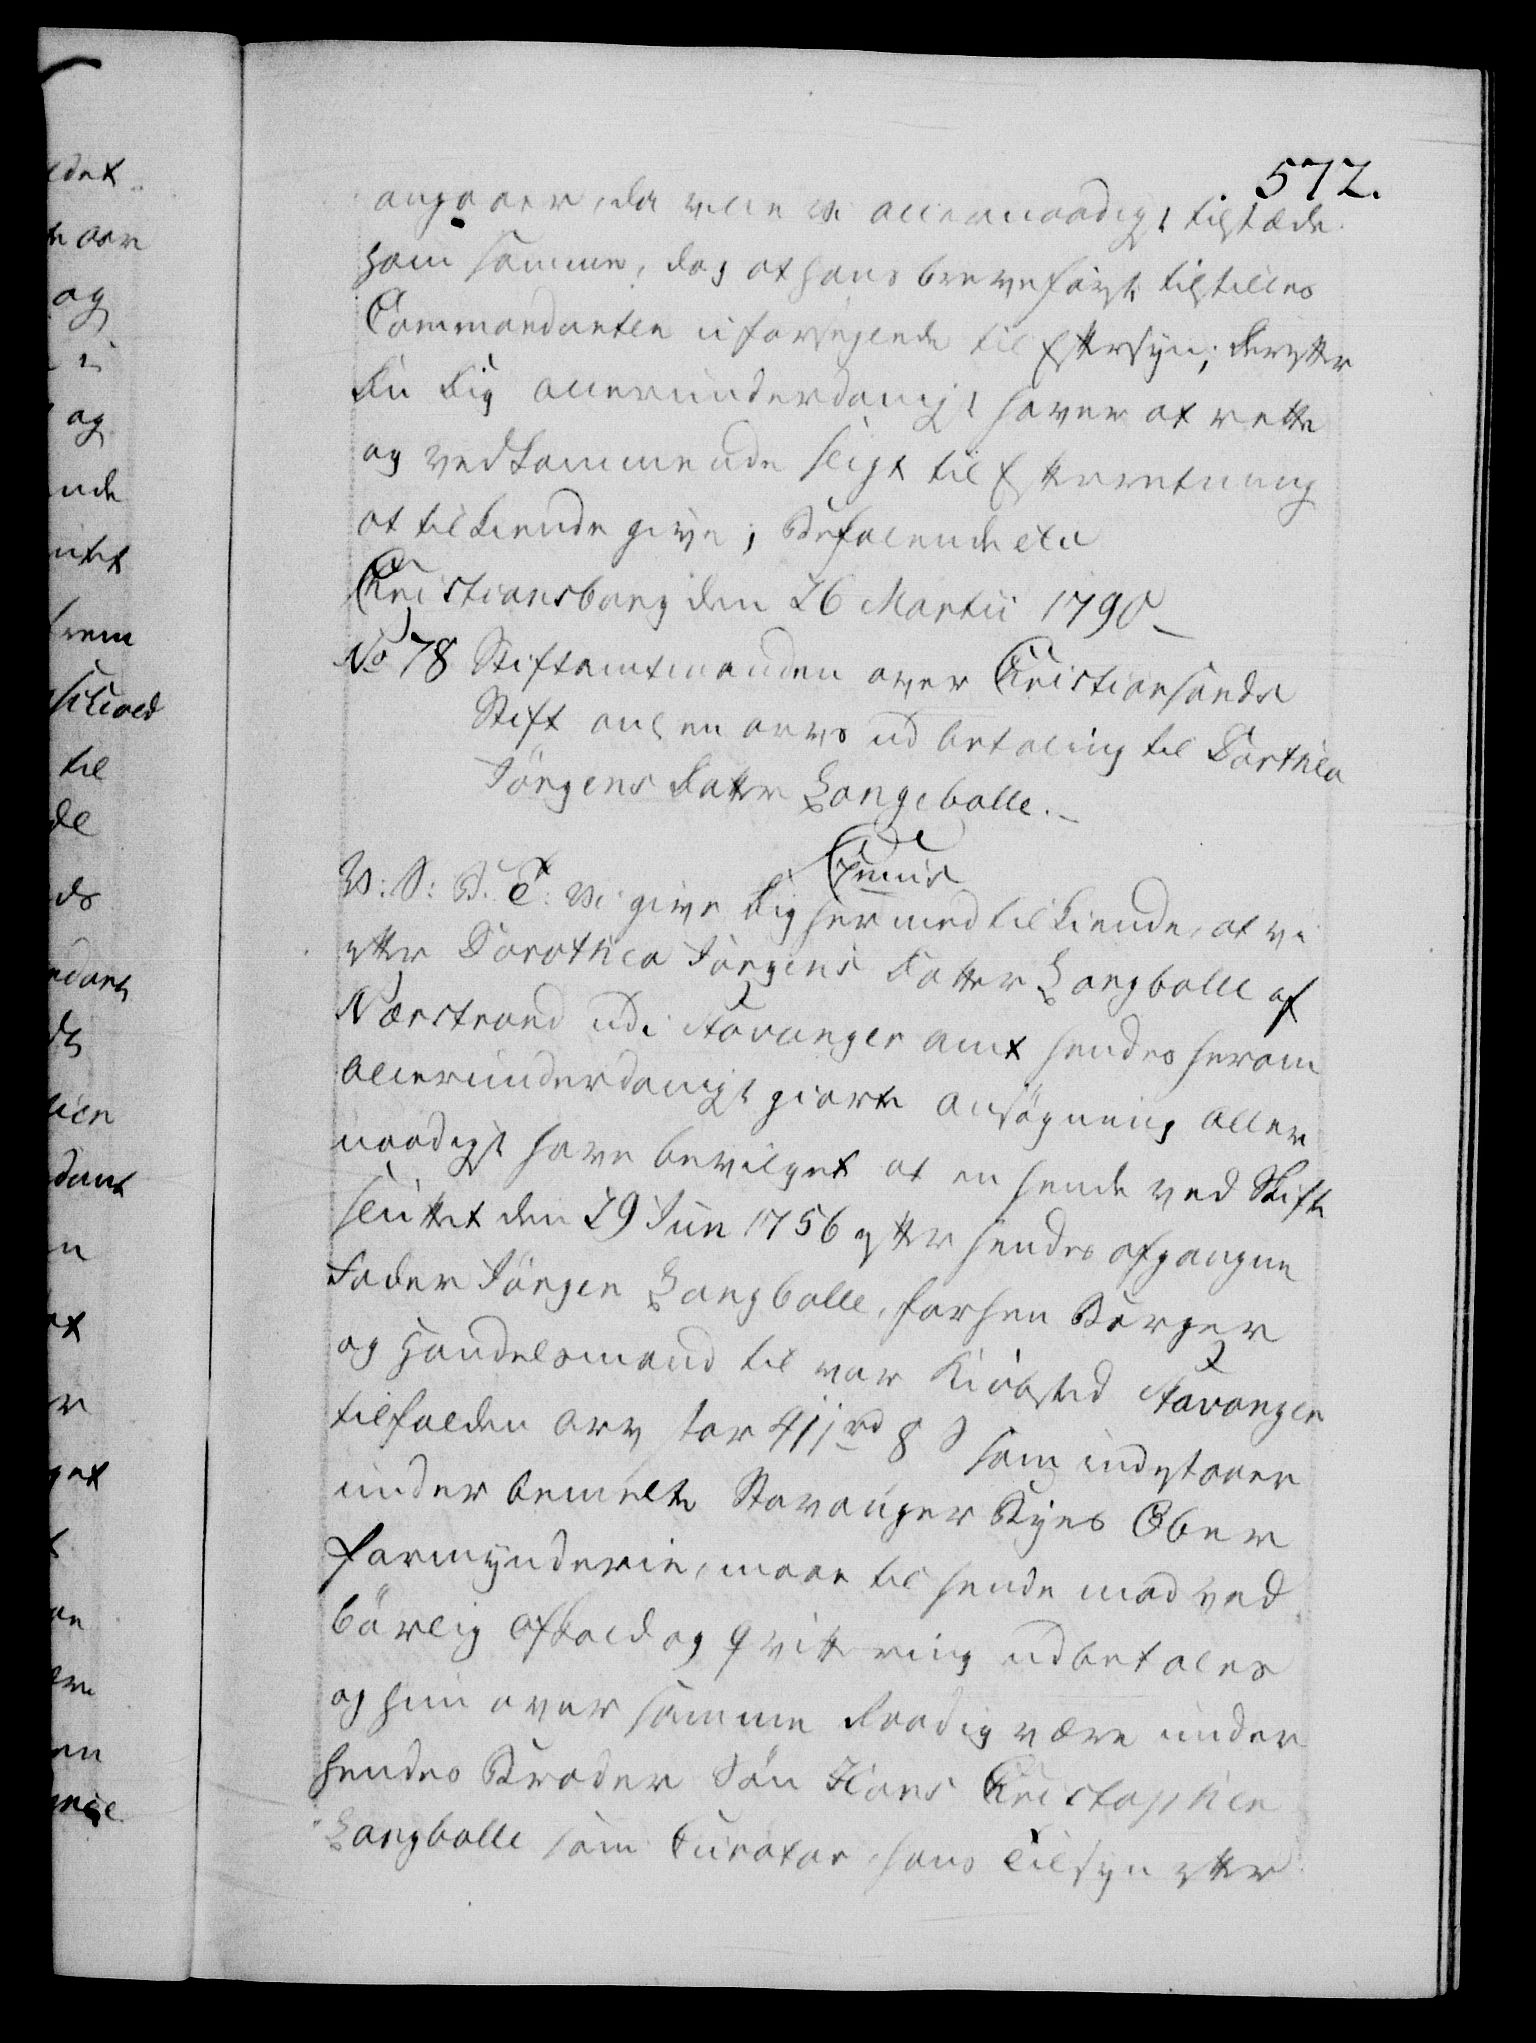 572.
angaaer, da ville vi allernaadigst tilstæde
ham samme, dog at hans breve først tilstilles
Commandanten uforseglede til Eftersyn; derefter
du dig allerunderdanigst haver at rette
og vedkommende sligt til Efterretning
at tilkiende give; Befalende etc
Christiansborg den 26 Martii 1790
No 78 Stiftamtmanden over Christiansands
Stift anl en arvs udbetaling til Dorthea
Jörgens Datter Langeballe.
C7mus
V: S: G: T: Vi give dig hermed tilkiende, at vi
efter Dorothea Jörgens Datter Langballe af
Nærstrand udi Stavanger amt hendes herom
allerunderdanigst giorte ansøgning aller
naadigst have bevilget at en hende ved Skifte
sluttet den 29 Jun 1756 efter hendes afgangne
Fader Jörgen Langballe, forhen Borger
og Handelsmand til vor Kiøbsted Stavanger
tilfalden arv stor 411 rd 8 s som indestaaer
under bemelte Stavanger Byes Ober
formynderie, maae til hende mod ved
børlig afkald og qvittering udbetales
og hun over samme Raadig være under
hendes Broder Søn Hans Christopher
Langballe som Curator, hans Tilsyn efter